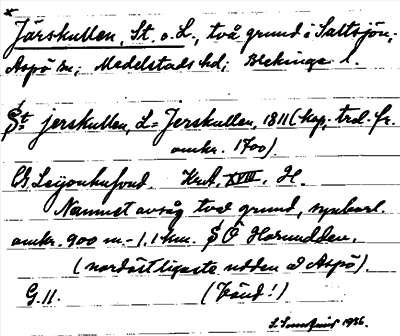 *
Järskullen, St. o. L., två grund i Saltsjön;
Aspö sn; Medelstads hd; Blekinge l.
St. jerskullen, L. Jerskullen, 1811 (kop. trol. fr.
omkr. 1700).
Ch. Leijonhufvud. KrA, XVIII, H.
Namnet avsåg två grund, synbarl.
omkr. 900 m. - 1,1 km. SO Horsudden,
(nordöstligaste udden å Aspö).
G. 11. (Känd!)
1936.